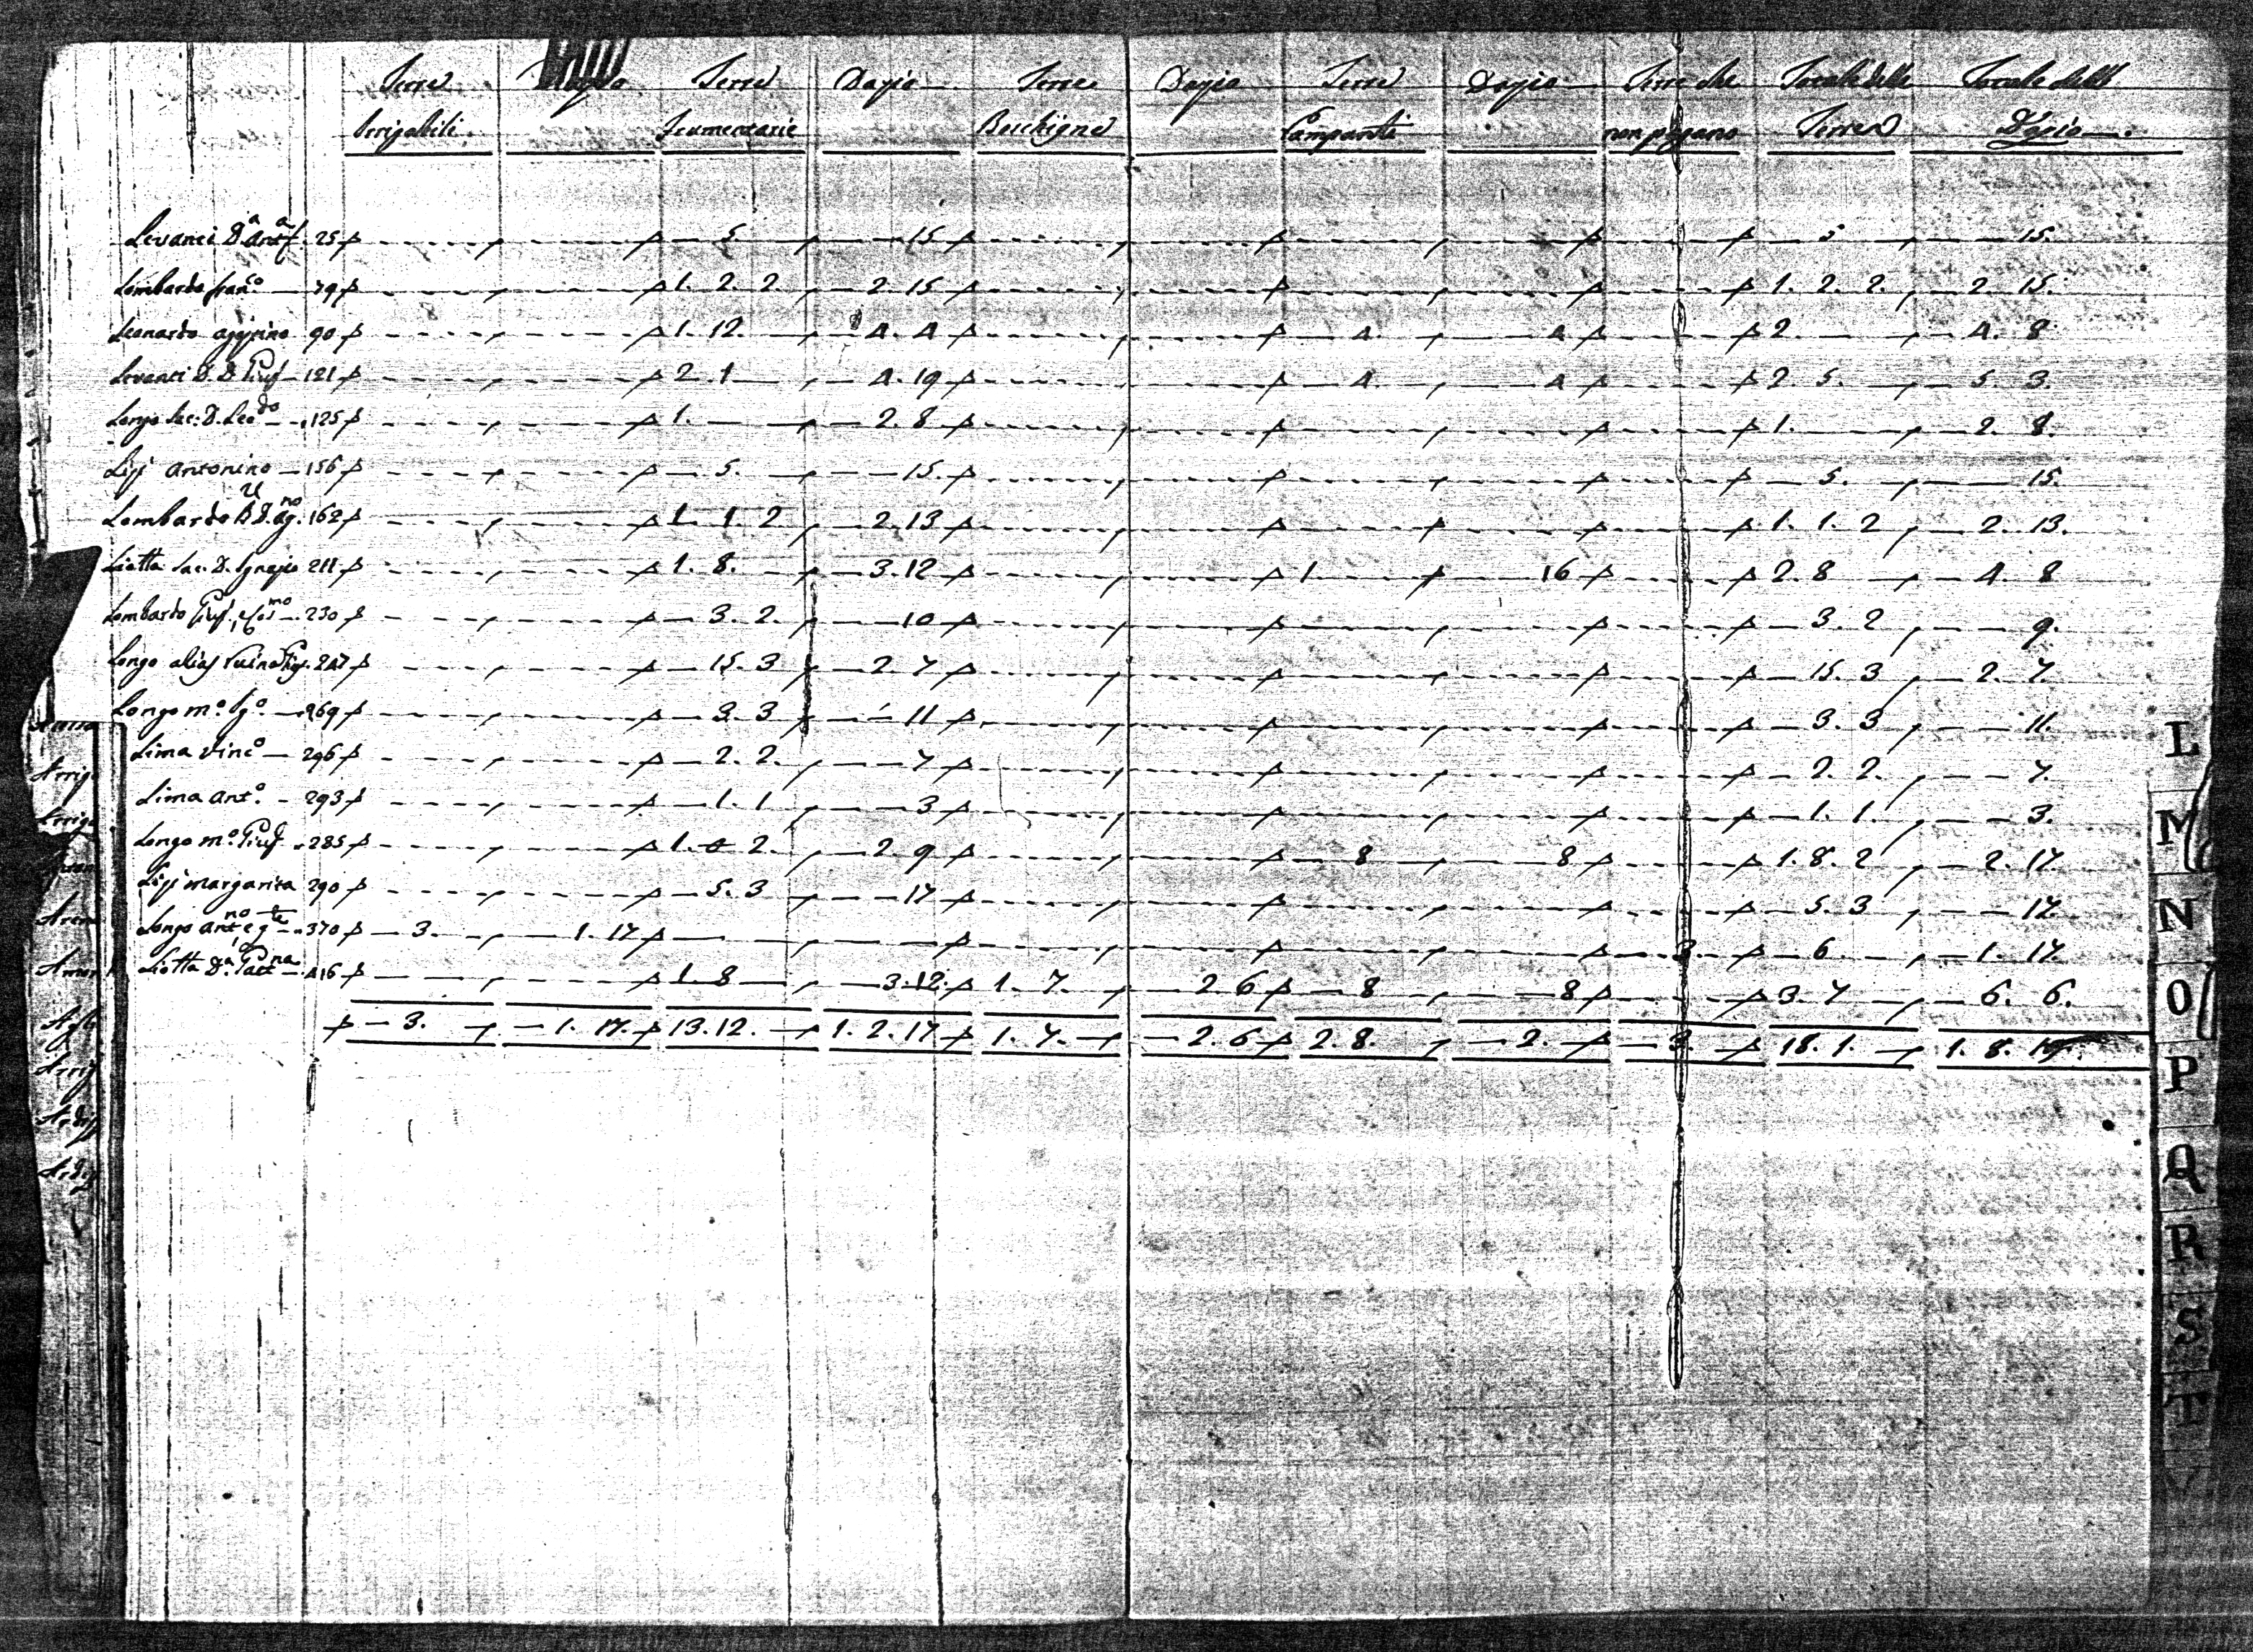 Terre Dazio Terre Dazio Terre Dazio Terre Dazio Terre che Totale delle Totale dell
Irrigabili Frumentarie Boschigne Campanti non pagano Terre Dazio
Levanti D.a Ant.a 25 5 15 5 15.
Lombardo Fran.o 79 1. 2 2 2 15 1. 2. 2. 2. 15.
Leonardo Agippino 90 1. 12. 4. 4 4. 4 2 4. 8
Levanti D. D. Giuf 121 2. 1 4. 19 4. 4 2 5. 5 3.
Longo Sac: D. Leo.do 125 1. 2. 8 1. 2. 8.
Lisi Antonino 156 5. 15. 5. 15.
Lombardo U D. Ag.no 162 1. 1 2 2. 13 1. 1. 2 2. 13.
Liotta Sac. D. Ignazio 211 1. 8. 3. 12 1 16 2. 8 4. 8
Lombardo Giuf. 230 3. 2. 10 3. 2 9.
Longo alias 247 15. 3 2. 7 15. 3 2. 7.
Longo m.o Ig.o 269 3. 3 11 3. 3 11.
Lima Vinc.o 296 2. 2. 7 2. 2. 7.
Lima Ant.o 293 1. 1 3 1. 1. 3.
Longo m.o Giuf 285 1. 0 2. 2. 9 8 8 1. 8. 2 2. 17.
Lisi Margarita 290 5. 3 17 5. 3 17.
Longo Ant.no e q.te 370 3. 1. 17 3. 6 1. 17.
Liotta D.a Gaet.na 416 1. 8 3. 12. 1. 7. 2 6 8 8 3. 7 6. 6.
3. 1. 17. 13. 12. 1. 2. 17 1. 7. 2. 6 2. 8. 2. 3. 18. 1. 1. 8.
Arrig
L
M
N
O
P
Q
R
S
T
V